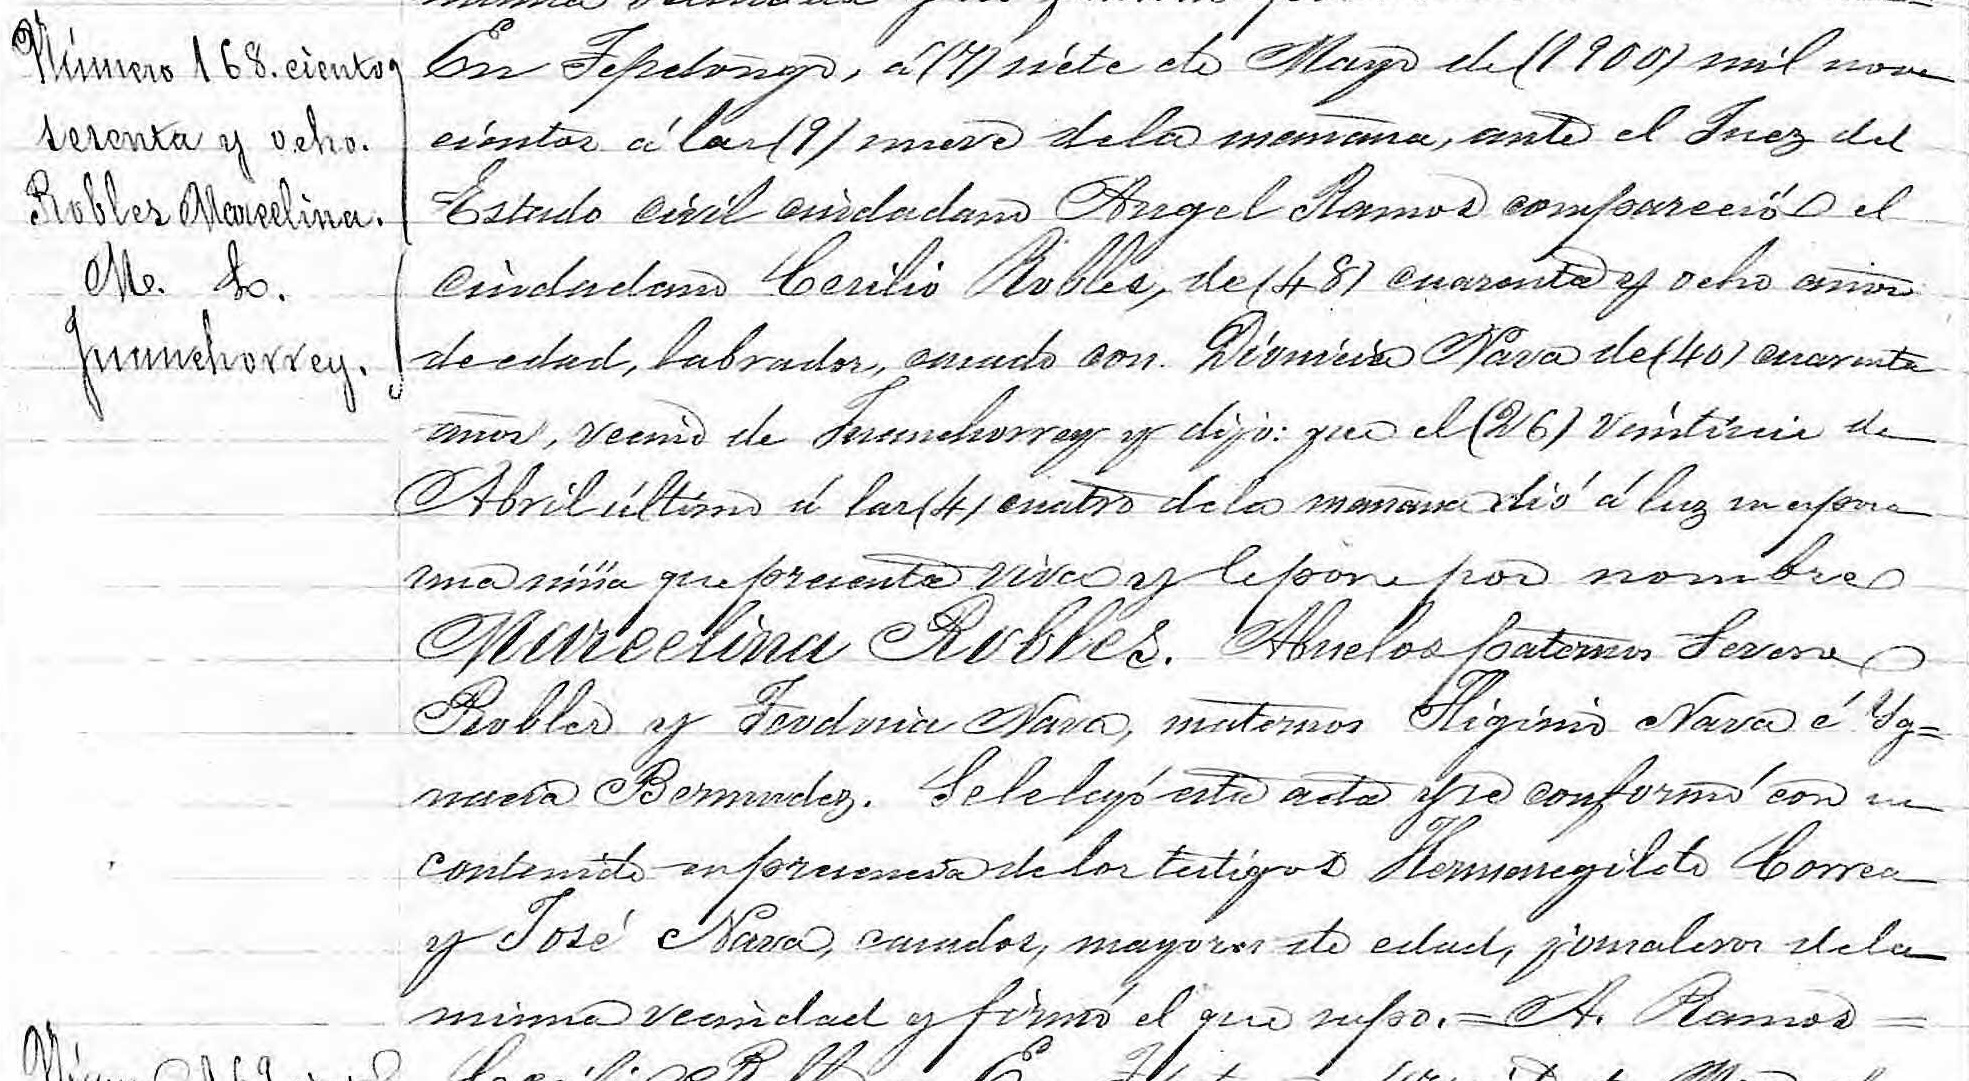 Número 168. ciento
sesenta y ocho.
Robles Marcelina.
M. L.
Juanchorrey.
En Tepetongo, á (7) siete de Mayo de (1900) mil nove
cientos á las (9) nueve de la mañana, ante el Juez del
Estado civil ciudadano Angel Ramos compareció el
ciudadano Cecilio Robles, de (48) cuarenta y ocho años
de edad, labrador, casado con Dionicia Nava de (40) cuarenta
años, vecino de Juanchorrey y dijo: que el (26) veintiseis de
Abril último á las (4) cuatro de la mañana dió á luz su esposa
una niña que presenta viva y le pone por nombre
Marcelina Robles. Abuelos paternos Severo
Robles y Teodoria Nava, maternos Higinio Nava é Yg=
nacia Bermudez. Se le leyó esta acta y se conformó con su
contenido en presencia de los testigos Hermenegildo Correa
y José Nava, casados, mayores de edad, jornaleros de la
misma vecindad y firmó el que supo. = A. Ramos =
Cecilio Robles